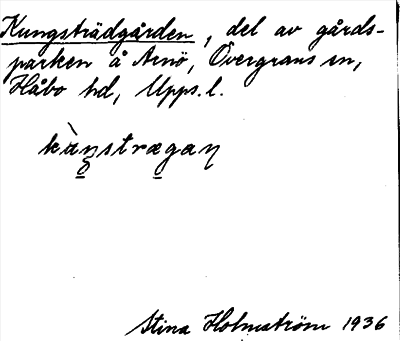 Kungsträdgården, del av gårds-
parken å Arnö, Övergrans sn,
Håbo hd, Upps. l.
kùŋstrægaɳ
Stina Holmström 1936